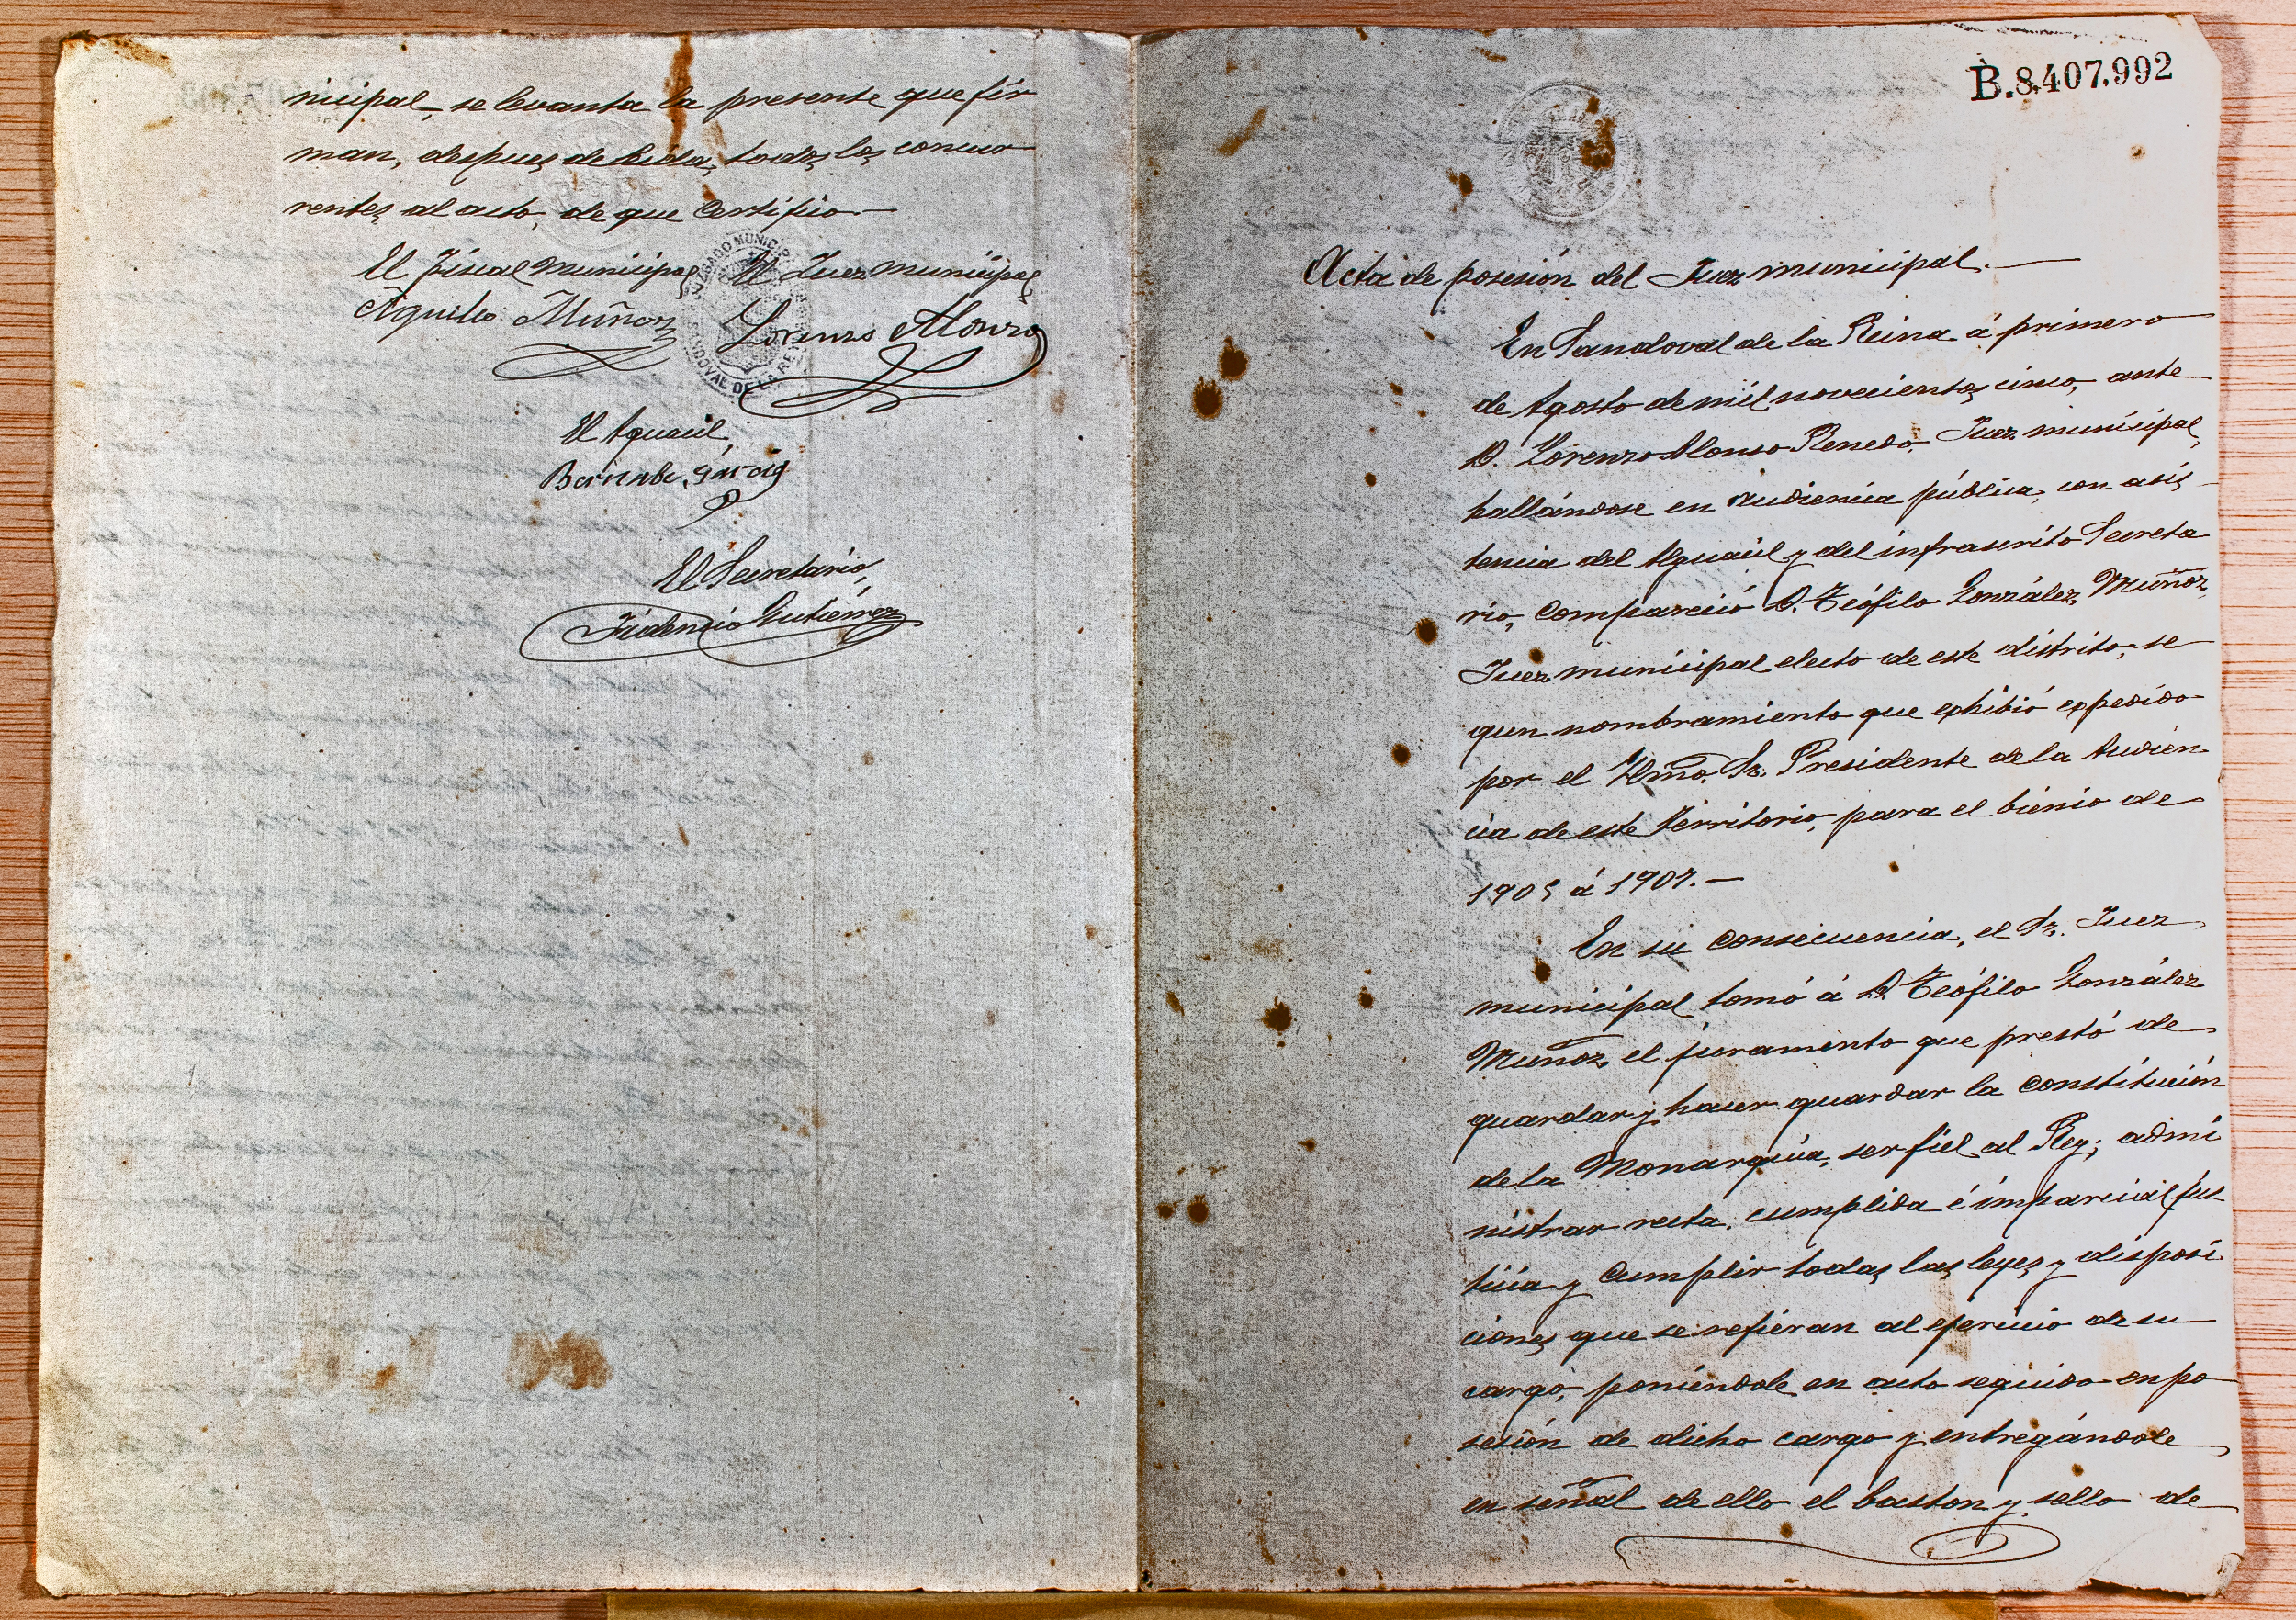 nicipal, se levanta la presente que fir
man, despues de leida, todos los concur
rentes al acto, de que certifico.—
El Fiscal municipal
Aquilio Muñoz
El Juez municipal
Lorenzo Alonso
JUZGADO MUNICIPAL
SANDOVAL DE LA REINA
El Aguacil,
Bernabe Garcia
El Secretário,
Fidencio Gutiérrez
B.8,407,992
Acta de posesión del Juez municipal.—
En Sandoval de la Reina á primero
de Agosto de mil novecientos cinco, ante
D. Lorenzo Alonso Renedo, Juez municipal,
hallándose en audiencia pública, con asis
tencia del Aguacil y del infrascrito Secreta
rio, compareció D. Teófilo González Muñoz,
Juez municipal electo de este distrito, se
gun nombramiento que exhibió expedido
por el Ilmo. Sr. Presidente de la Audien
cia de este territorio, para el bienio de
1905 á 1907.—
En su consecuencia, el Sr. Juez
municipal tomó á D. Teófilo González
Muñoz el juramento que prestó de
guardar y hacer guardar la constitución
de la Monarquía, ser fiel al Rey; admi
nistrar recta, cumplida é imparcial jus
ticia y cumplir todas las leyes y disposi
ciones que se refieran al ejercicio de su
cargo, poniéndole en acto seguido en po
sesión de dicho cargo y entregándole
en señal de ello el baston y sello de